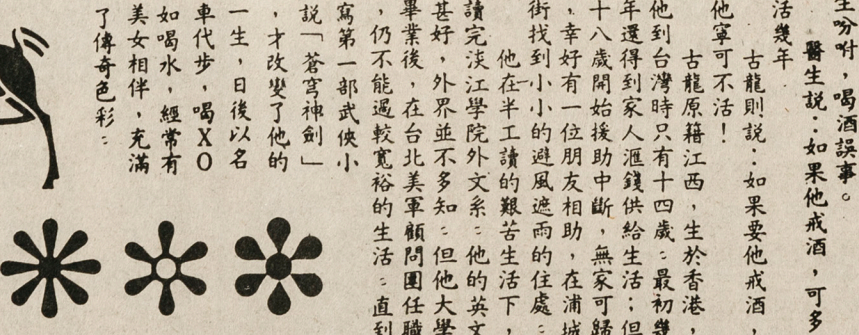 生吩咐，喝酒誤事。
醫生說：如果他戒酒，可多
活幾年
古龍則說：如果要他戒酒，
他寧可不活！
古龍原籍江西，生於香港，
他到台灣時只有十四歲：最初幾
年還得到家人滙錢供給生活；但
十八歲開始援助中斷，無家可歸
，幸好有一位朋友相助，在浦城
街找到小小的避風遮雨的住處：
他在半工讀的艱苦生活下，
讀完淡江學院外文系：他的英文
甚好，外界並不多知：但他大學
畢業後，在台北美軍顧問團任職
，仍不能過較寬裕的生活：直到
寫第一部武俠小
說「蒼穹神劍」
，才改變了他的
一生，日後以名
車代步，喝XO
如喝水，經常有
美女相伴，充滿
了傳奇色彩：